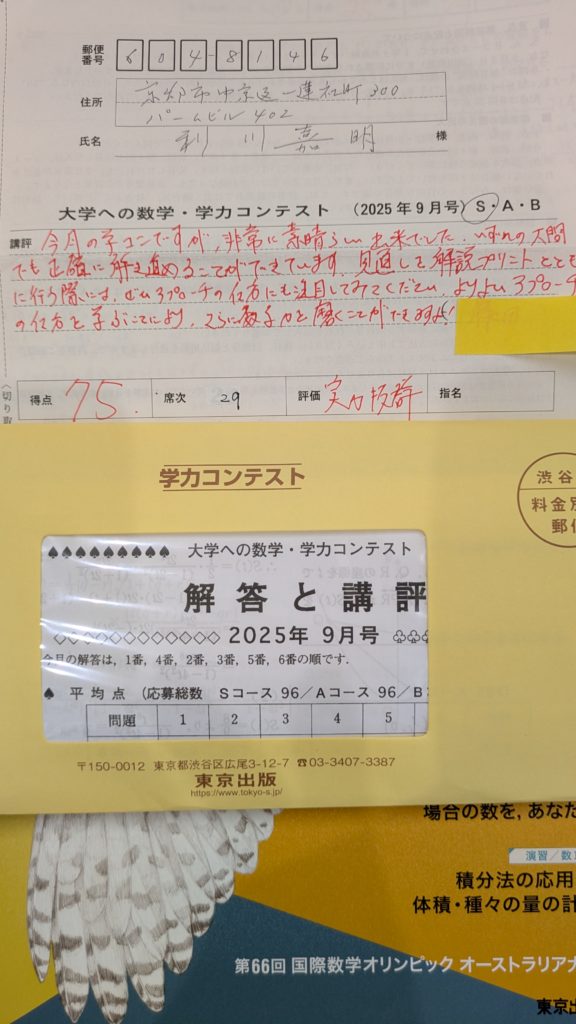 郵便番号 604-8146
住所 京都市中京区一蓮社町300
パームビル402
氏名 利川嘉明 様
大学への数学・学力コンテスト (2025年9月号) S・A・B
講評 今月の学コンですが、非常に素晴らしい出来でした. いずれの大問
でも正確に解き進めることができています. 見直しで解説プリントととも
に行う際には, ぜひアプローチの仕方にも注目してみてください. よりよいアプローチ
の仕方を学ぶことにより, さらに数学力を磨くことができますよ!
切り取
得点 75. 席次 29 評価 実力抜群 指名
学力コンテスト
渋谷
料金別
郵便
♠♠♠♠♠♠♠♠♠ 大学への数学・学力コンテスト
解答と講評
◇◇◇◇◇◇◇◇◇◇◇◇ 2025年 9月号 ♧♧♧
今月の解答は, 1番, 4番, 2番, 3番, 5番, 6番の順です.
♠ 平均点 (応募総数 Sコース 96/Aコース 96/B
問題 1 2 3 4 5
〒150-0012 東京都渋谷区広尾3-12-7 ☎03-3407-3387
東京出版
https://www.tokyo-s.jp/
場合の数を, あなた
演習/数
積分法の応用
体積・種々の量の計
第66回 国際数学オリンピック オーストラリア
東京出